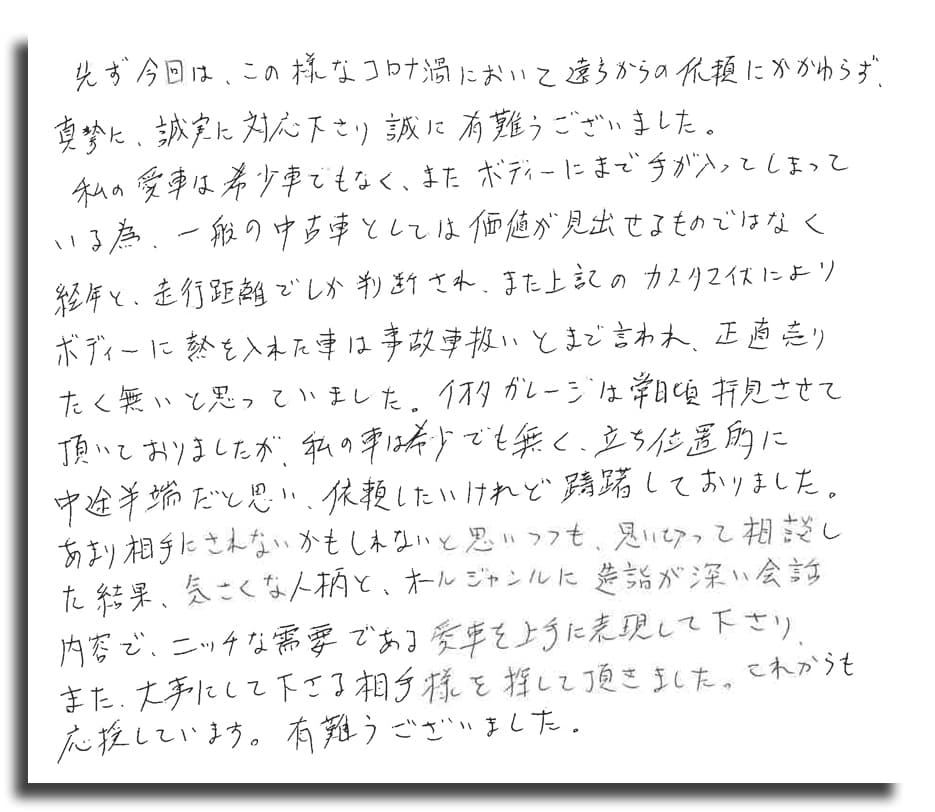 先ず今回は、この様なコロナ渦において遠方からの依頼にかかわらず、
真摯に、誠実に対応下さり誠に有難うございました。
私の愛車は希少車でもなく、またボディーにまで手が入ってしまって
いる為、一般の中古車としては価値が見出せるものではなく
経年と、走行距離でしか判断され、また上記のカスタマイズにより
ボディーに熱を入れた車は事故車扱いとまで言われ、正直売り
たく無いと思っていました。イオタガレージは常日頃拝見させて
頂いておりましたが、私の車は希少でも無く、立ち位置的に
中途半端だと思い、依頼したいけれど躊躇しておりました。
あまり相手にされないかもしれないと思いつつも、思い切って相談し
た結果、気さくな人柄と、オールジャンルに造詣が深い会話
内容で、ニッチな需要である愛車を上手に表現して下さり、
また、大事にして下さる相手様を探して頂きました。これからも
応援しています。有難うございました。